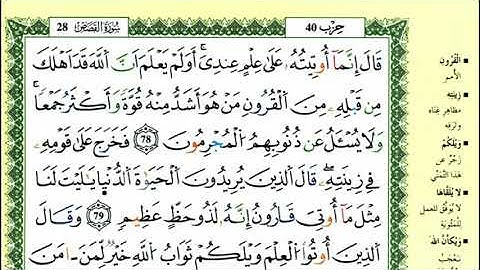 سُورَةُ القَصَصِ 28
حِزْب 40
قَالَ إِنَّمَا أُوتِيتُهُۥ عَلَىٰ عِلْمٍ عِندِيٓ أَوَلَمْ يَعْلَمْ أَنَّ ٱللَّهَ قَدْ أَهْلَكَ
مِن قَبْلِهِۦ مِنَ ٱلْقُرُونِ مَنْ هُوَ أَشَدُّ مِنْهُ قُوَّةً وَأَكْثَرُ جَمْعًا
وَلَا يُسْـَٔلُ عَن ذُنُوبِهِمُ ٱلْمُجْرِمُونَ 78 فَخَرَجَ عَلَىٰ قَوْمِهِۦ
فِي زِينَتِهِۦ قَالَ ٱلَّذِينَ يُرِيدُونَ ٱلْحَيَوٰةَ ٱلدُّنْيَا يَـٰلَيْتَ لَنَا
مِثْلَ مَآ أُوتِيَ قَـٰرُونُ إِنَّهُۥ لَذُو حَظٍّ عَظِيمٍ 79 وَقَالَ
ٱلَّذِينَ أُوتُوا۟ ٱلْعِلْمَ وَيْلَكُمْ ثَوَابُ ٱللَّهِ خَيْرٌ لِّمَنْ ءَامَنَ
القُرُونِ
الأمم
زِينَتِهِ
مظاهر غناه
وترفه
وَيْلَكُمْ
زجر عن
هذا التمني
لا يُلَقَّاهَا
لا يوفّق للعمل
للمثوبة
وَيْكَأَنَّ اللهَ
نعجب